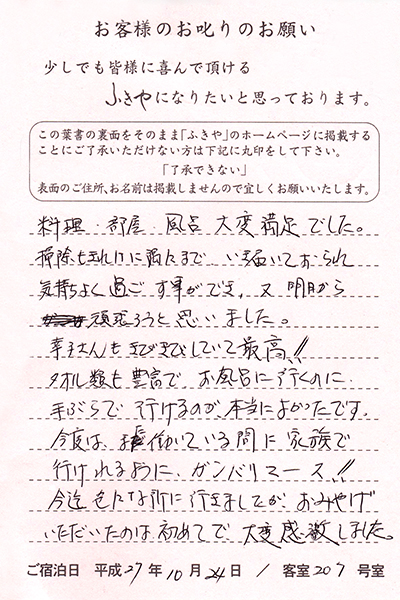 お客様のお叱りのお願い
少しでも皆様に喜んで頂ける
ふきやになりたいと思っております。
この葉書の裏面をそのまま「ふきや」のホームページに掲載する
ことにご了承いただけない方は下記に丸印をして下さい。
「了承できない」
表面のご住所、お名前は掲載しませんので宜しくお願いいたします。
料理 部屋 風呂 大変満足でした。
掃除もきれいに隅々まで いき届いておられ
気持ちよく過ごす事ができ、又 明日から
頑張ろうと思いました。
さんもきびきびしていて最高!!
タオル類も豊富で お風呂に行くのに
手ぶらで 行けるのが、本当によかったです。
今度は、働いている間に 家族で
行けれるように、ガンバリマース!!
今迄 色々な所に行きましたが、おみやげ
いただいたのは初めてで 大変感激しました。
ご宿泊日 平成27年10月24日 / 客室207号室